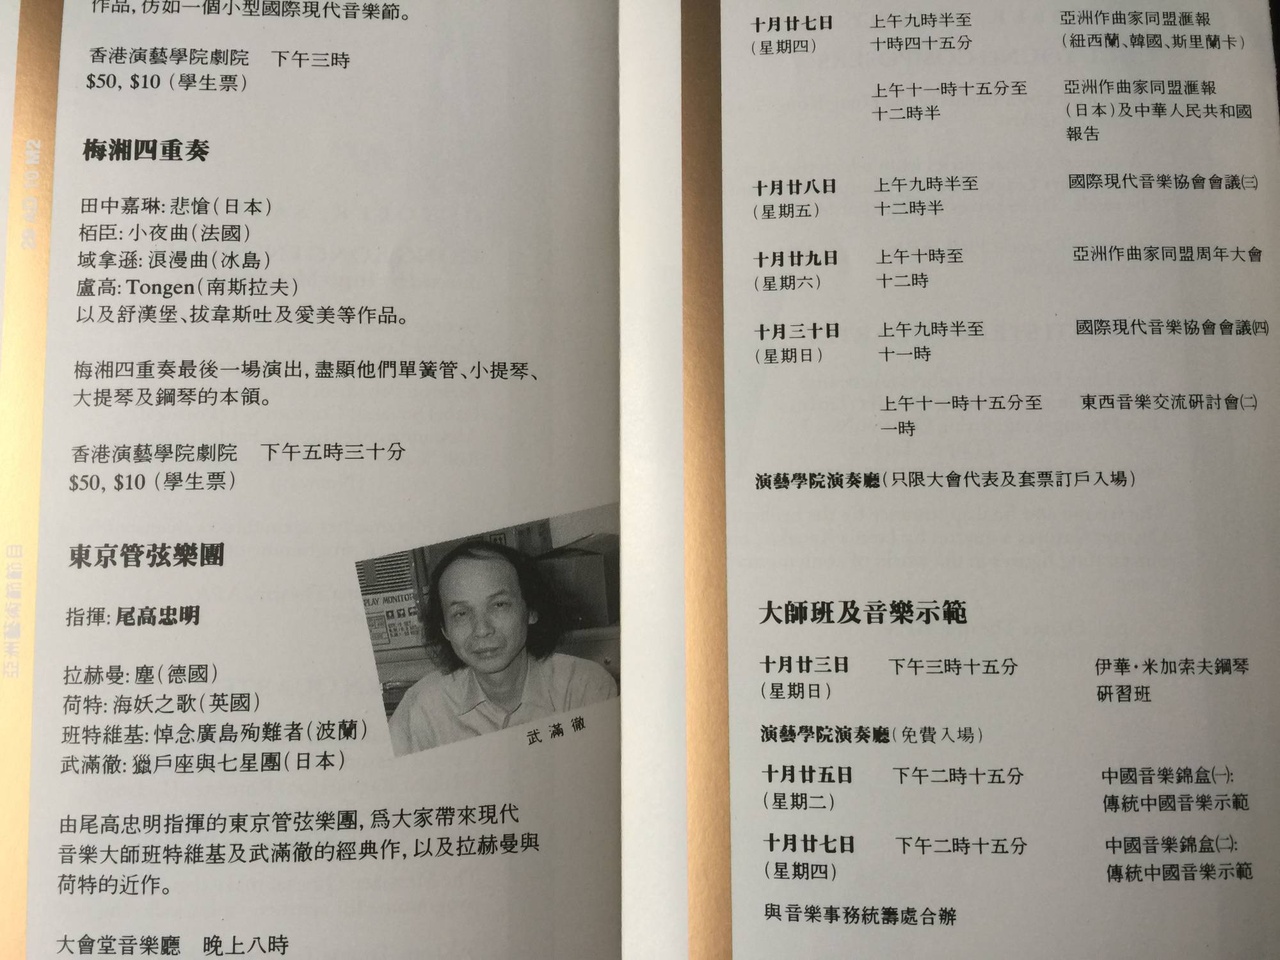 作品,仿如一個小型國際現代音樂節。
香港演藝學院劇院 下午三時
$50, $10 (學生票)
梅湘四重奏
田中嘉琳:悲愴(日本)
栢臣:小夜曲(法國)
域拿遜:浪漫曲(冰島)
盧高:Tongen(南斯拉夫)
以及舒漢堡、拔韋斯吐及愛美等作品。
梅湘四重奏最後一場演出,盡顯他們單簧管、小提琴、
大提琴及鋼琴的本領。
香港演藝學院劇院 下午五時三十分
$50, $10 (學生票)
東京管弦樂團
指揮:尾高忠明
拉赫曼:塵(德國)
荷特:海妖之歌(英國)
班特維基:悼念廣島殉難者(波蘭)
武滿徹:獵戶座與七星團(日本)
PLAY MONITOR
武滿徹
由尾高忠明指揮的東京管弦樂團,爲大家帶來現代
音樂大師班特維基及武滿徹的經典作,以及拉赫曼與
荷特的近作。
大會堂音樂廳 晚上八時
亞洲藝術節節目
十月廿七日 上午九時半至 亞洲作曲家同盟滙報
(星期四) 十時四十五分 (紐西蘭、韓國、斯里蘭卡)
上午十一時十五分至 亞洲作曲家同盟滙報
十二時半 (日本)及中華人民共和國
報告
十月廿八日 上午九時半至 國際現代音樂協會會議㈢
(星期五) 十二時半
十月廿九日 上午十時至 亞洲作曲家同盟周年大會
(星期六) 十二時
十月三十日 上午九時半至 國際現代音樂協會會議㈣
(星期日) 十一時
上午十一時十五分至 東西音樂交流研討會㈡
一時
演藝學院演奏廳(只限大會代表及套票訂戶入場)
大師班及音樂示範
十月廿三日 下午三時十五分 伊華·米加索夫鋼琴
(星期日) 研習班
演藝學院演奏廳(免費入場)
十月廿五日 下午二時十五分 中國音樂錦盒㈠:
(星期二) 傳統中國音樂示範
十月廿七日 下午二時十五分 中國音樂錦盒㈡:
(星期四) 傳統中國音樂示範
與音樂事務統籌處合辦